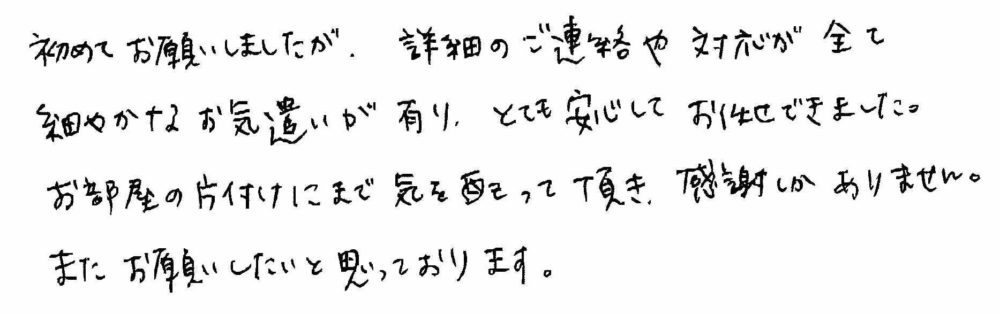 初めてお願いしましたが、詳細のご連絡や対応が全て
細やかなるお気遣いが有り、とても安心してお任せできました。
お部屋の片付けにまで気を配って頂き、感謝しかありません。
またお願いしたいと思っております。